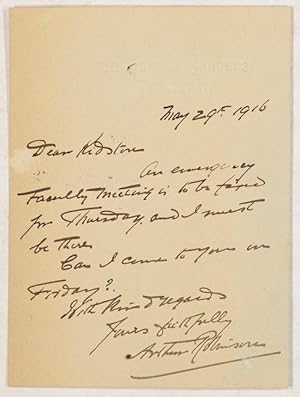 May 29th 1916
Dear Kidston
An emergency
Faculty Meeting is to be
for Thursday, and I must
be there
Can I come to you on
Friday?
With kind regards
Yours faithfully
Arthur Robinson